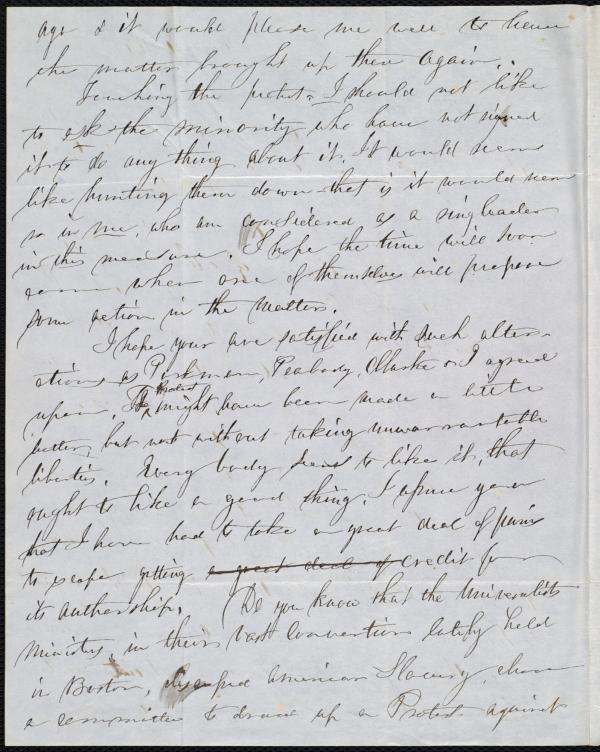 ago & it would please me well to have
the matter brought up there again.
Touching the protest, I should not like
to ask the minority who have not signed
it to do any thing about it. It would seem
like hunting them down – that is it would seem
so in me, who am considered as a ringleader
in this measure. I hope the time will soon
come when one of themselves will propose
some action in the matter.
I hope you are satisfied with such alter-
ations as Parkman, Peabody, Clarke & I agreed
upon. The Protest might have been made a little
better, but not without taking unwarrantable
liberties. Every body seems to like it, that
ought to like a good thing. I assure you
that I have had to take a great deal of pains
to escape getting a great deal of credit for
its authorship. Do you know that the Universalist
ministers, in their vast Convention lately held
in Boston, discussed American Slavery, chose
a committee to draw up a Protest against